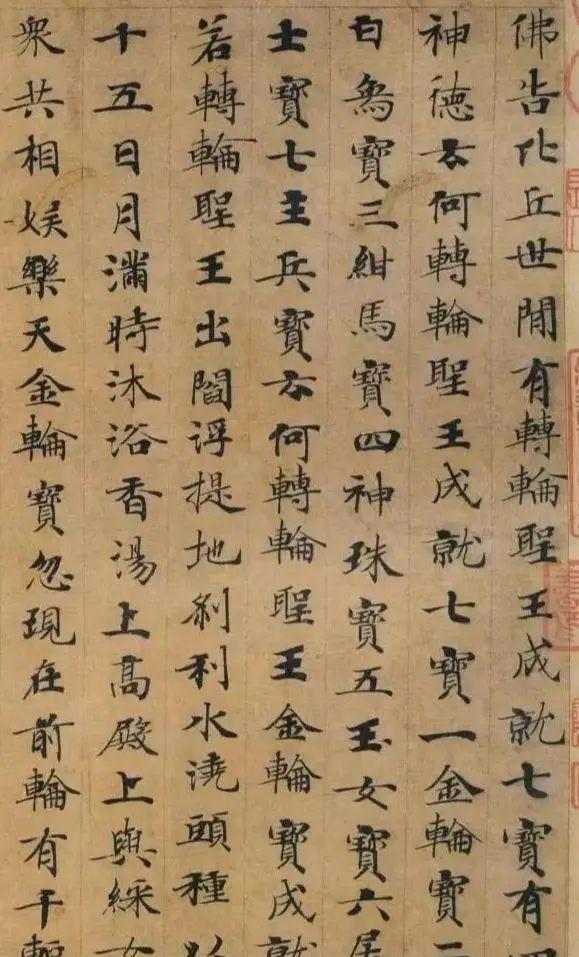 佛告比丘世間有轉輪聖王成就七寶有四
神德云何轉輪聖王成就七寶一金輪寶二
白爲寶三紺馬寶四神珠寶五玉女寶六居
士寶七主兵寶云何轉輪聖王金輪寶成就
若轉輪聖王出閻浮提地剎利水澆頭種以
十五日月滿時沐浴香湯上髙殿上與綵女
衆共相娱樂天金輪寶忽現在前輪有千輻